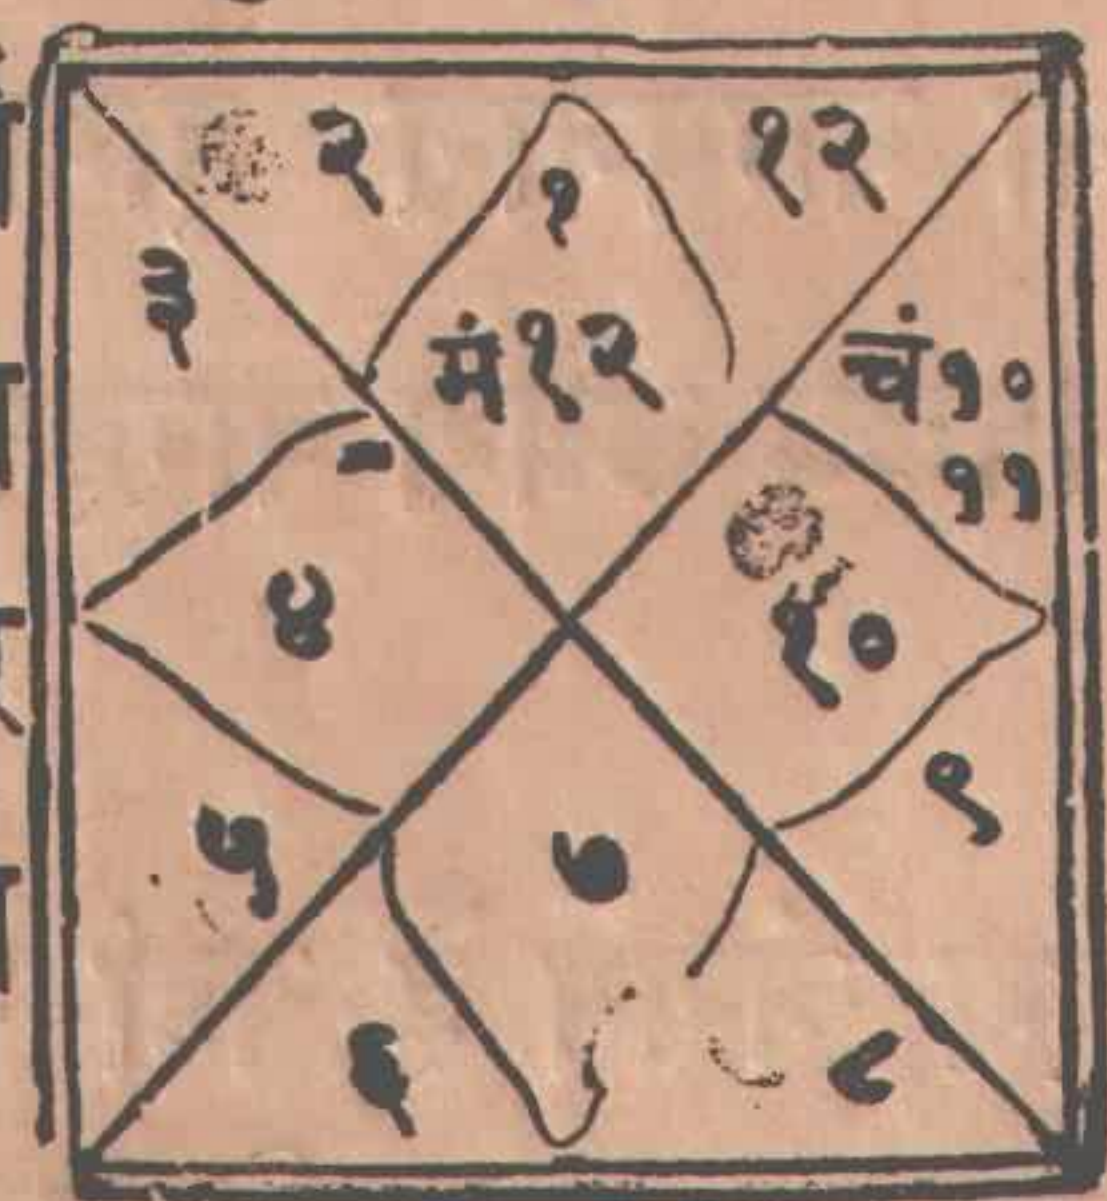 २ १ १२
३ मं१२ चं१०
११
४ १०
५ ७ ९
६ ८